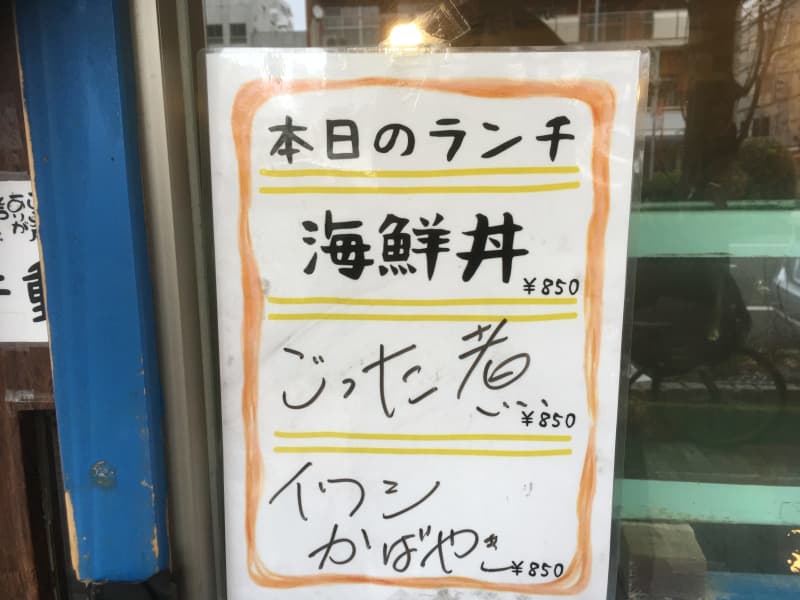 本日のランチ
海鮮丼
¥850
ごった煮
¥850
イワシ
かばやき
¥850
ありが
動